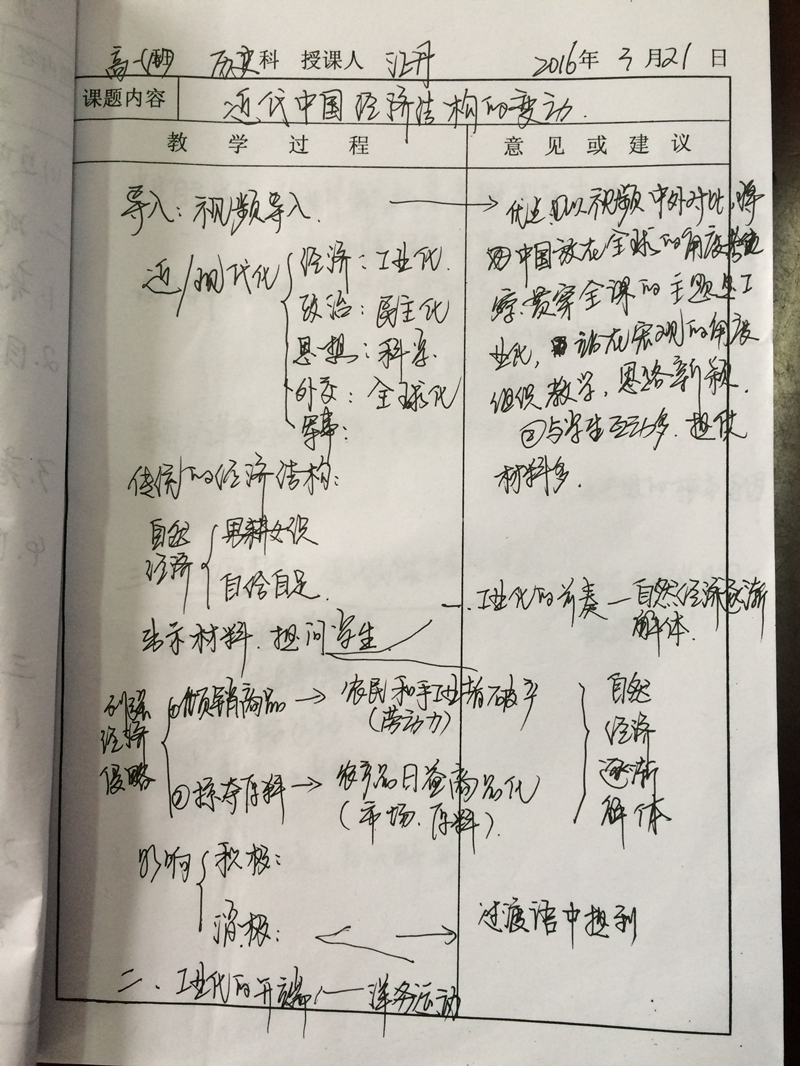 高一 历史科 授课人 江丹 2016年3月21日
课题内容 近代中国经济结构的变动
教学过程 意见或建议
导入：视频导入 → 优点：①以视频中外对比，将
中国放在全球的角度考虑
近/现代化 { 经济：工业化
政治：民主化
思想：科学
外交：全球化
军事：
贯穿全课的主题是工
业化，站在宏观的角度
组织教学，思路新颖。
②与学生互动多，提供
材料多。
传统的经济结构：
自然经济 { 男耕女织
自给自足
出示材料，提问学生
工业化的前奏—自然经济逐渐
解体
列强经济侵略 { ①倾销商品 → 农民和手工业者破产
(劳动力)
②掠夺原料 → 农产品日益商品化
(市场、原料)
自然经济逐渐解体
影响 { 积极：
消极： → 过渡语中提到
二、工业化的开端 —— 洋务运动